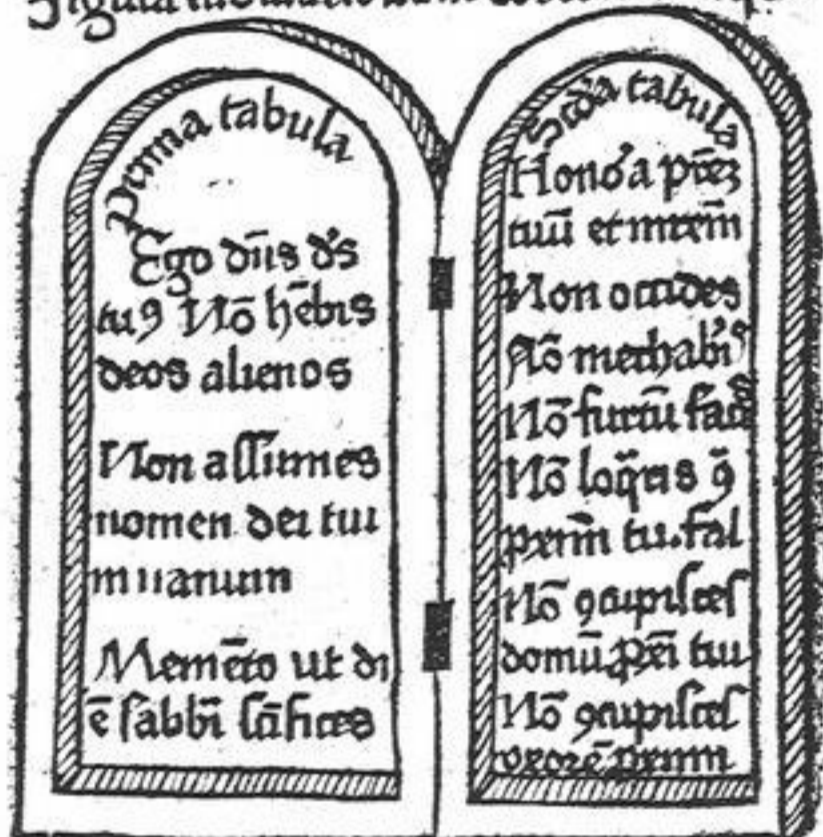 Figura
Prima tabula
Ego dn̄s ds̓
tuꝯ Nō hēbis
deos alienos
Non assumes
nomen dei tui
in uanum
Memēto ut di
ē sabbī scīfices
Scd̓a tabula
Hono᷑a pr̄ez
tuū et mr̄em
Non occides
Nō mechab̓is
Nō furtū fac̄
Nō loq̄ris ꝯ̄
ꝓxim̄ tu. fal
Nō ꝯcupisces
domū ꝓxī tui
Nō ꝯcupisces
vxorē ꝓximi